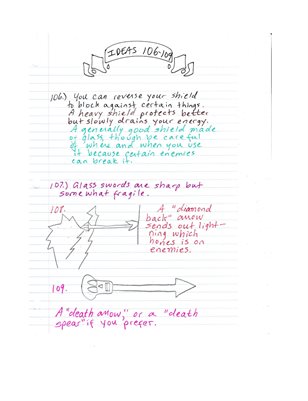 IDEAS 106-109
106.) You can reverse your shield
to block against certain things.
A heavy shield protects better
but slowly drains your energy.
A generally good shield made
of glass though be careful
of where and when you use
it because certain enemies
can break it.
107.) Glass swords are sharp but
somewhat fragile.
108.
A "diamond
back" arrow
sends out light-
ning which
hones is on
enemies.
109.
A "death arrow," or a "death
spear" if you prefer.